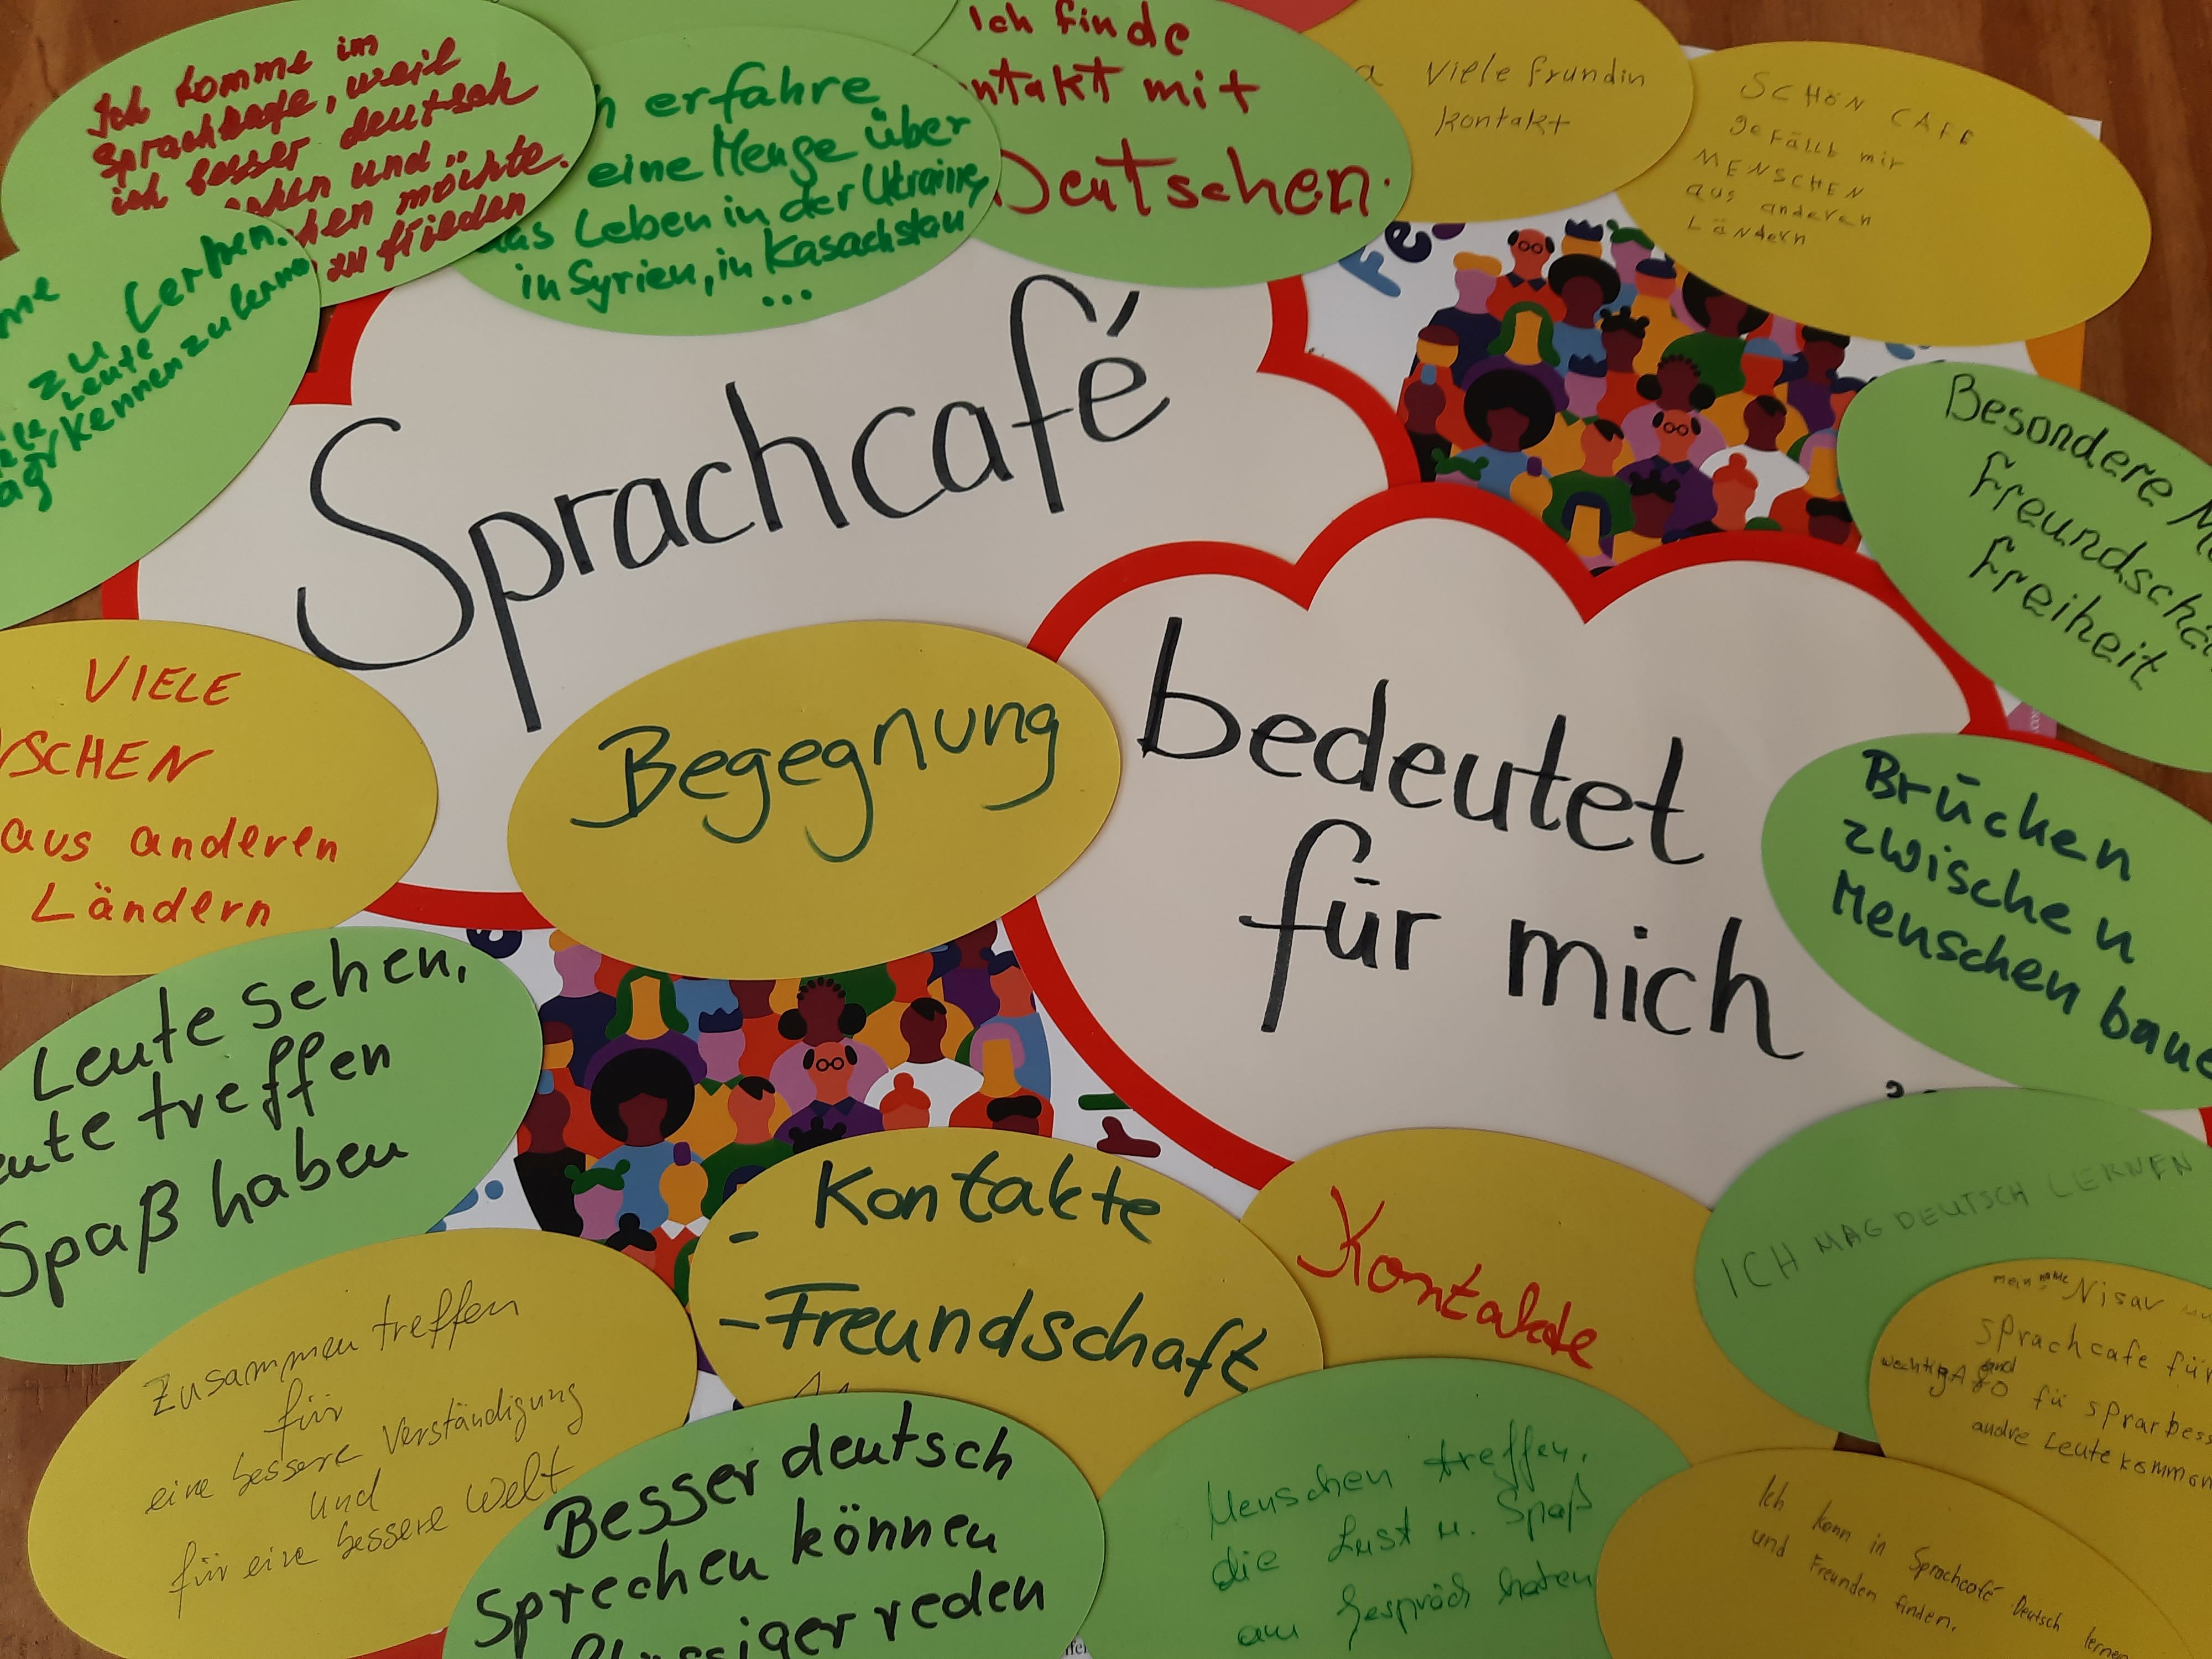 Ich komme im
Sprachkafe, weil
ich besser deutsch
und
möchte.
zu frieden
erfahre
eine Menge über
das Leben in der Ukraine,
in Syrien, in Kasachstan
...
Ich finde
ntakt mit
Deutschen.
Viele frundin
kontakt
SCHÖN CAFE
gefällt mir
MENSCHEN
aus anderen
Ländern
zu Lernen.
Leute
Kennenzulernen
Sprachcafé
bedeutet
für mich
Begegnung
Besondere
Freundscha
Freiheit
VIELE
SCHEN
aus anderen
Ländern
Brücken
zwischen
Menschen baue
Leute sehen,
ute treffen
Spaß haben
- Kontakte
- Freundschaft
Kontakte
ICH MAG DEUTSCH LERNEN
mein name Nisar
sprachcafe für
andre Leute kommen
Zusammen treffen
für
eine bessere Verständigung
und
für eine bessere Welt
Besser deutsch
Sprechen können
flüssiger reden
Menschen treffen,
die Lust u. Spaß
am Gespräch haben
Ich kann in Sprachcafé Deutsch lernen
und Freunden finden.